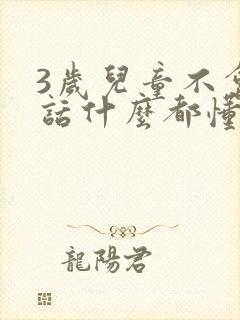 3歲兒童不會
話什麼都懂
龍陽君